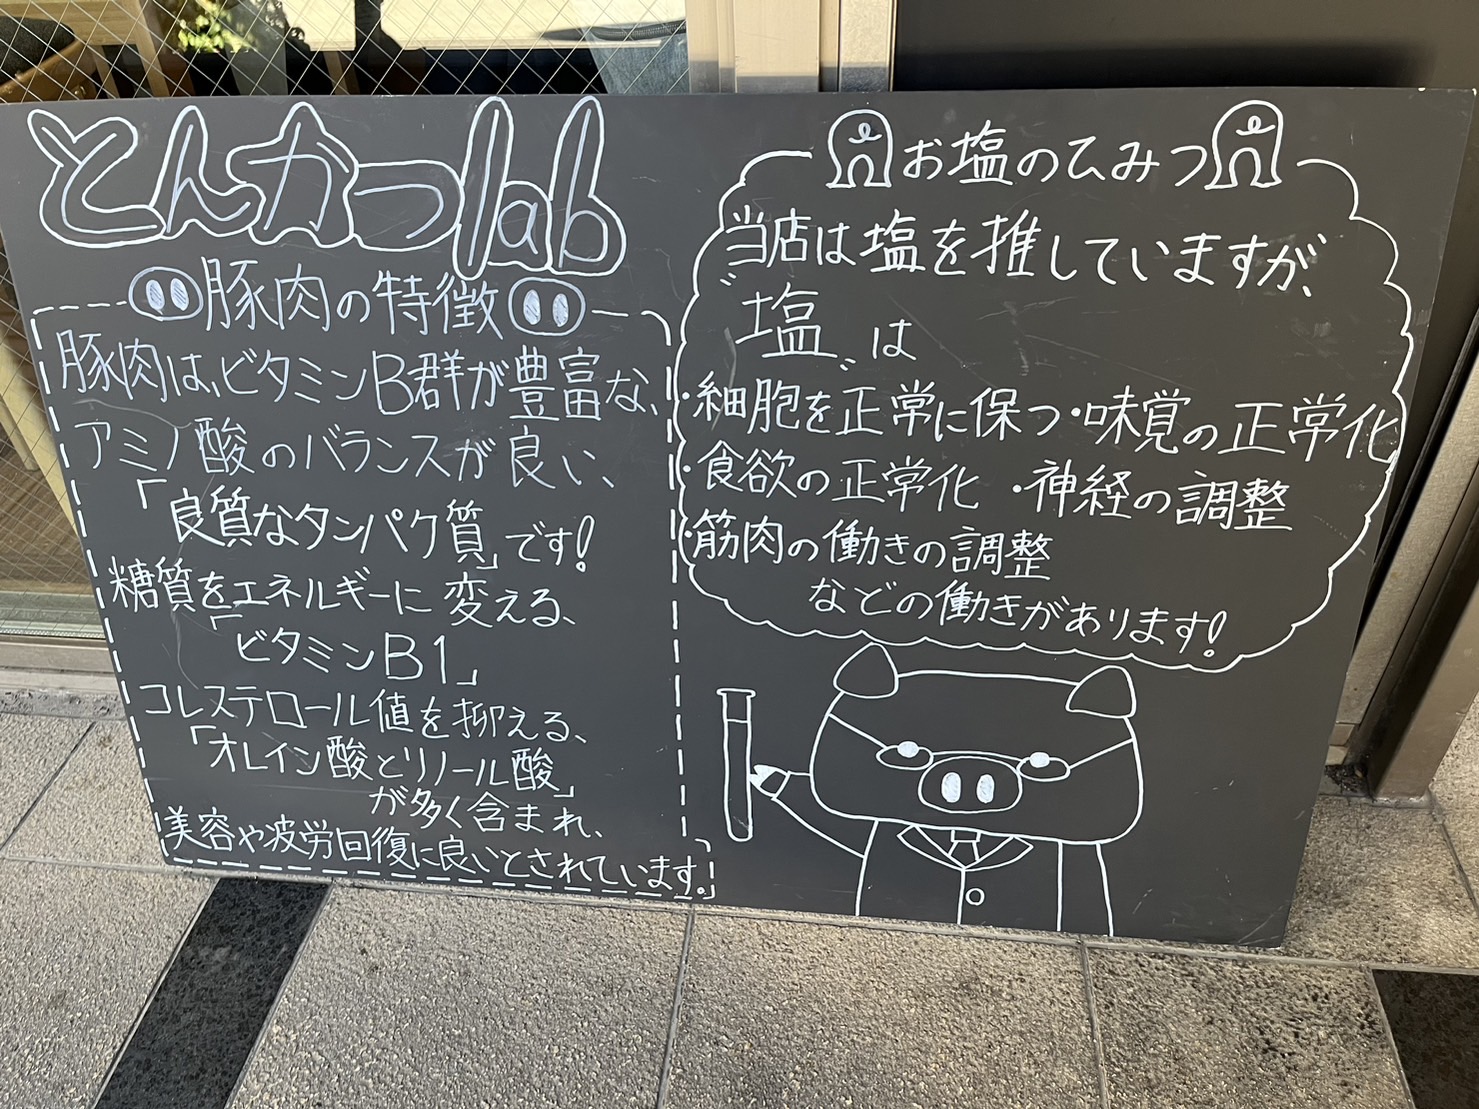 とんかつlab
豚肉の特徴
豚肉は、ビタミンB群が豊富な、
アミノ酸のバランスが良い、
「良質なタンパク質」です!
糖質をエネルギーに変える、
「ビタミンB1」
コレステロール値を抑える、
「オレイン酸とリノール酸」
が多く含まれ、
美容や疲労回復に良いとされています。
お塩のひみつ
当店は塩を推していますが、
"塩"は
・細胞を正常に保つ・味覚の正常化
・食欲の正常化 ・神経の調整
・筋肉の働きの調整
などの働きがあります!